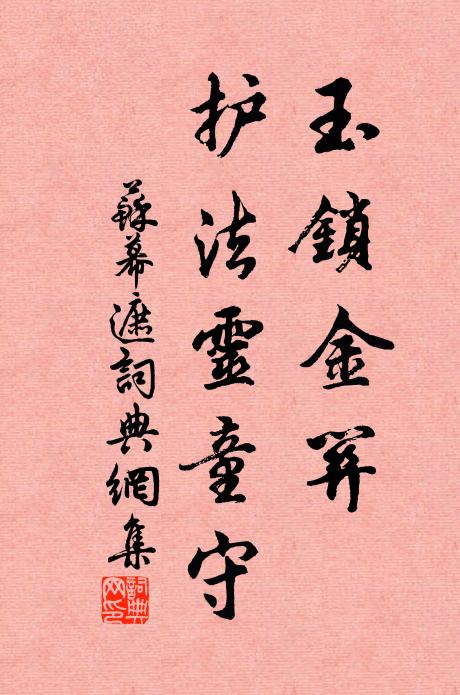 玉鎖金關
护法靈童守
蘇幕遮詞典網集
詞典
网印